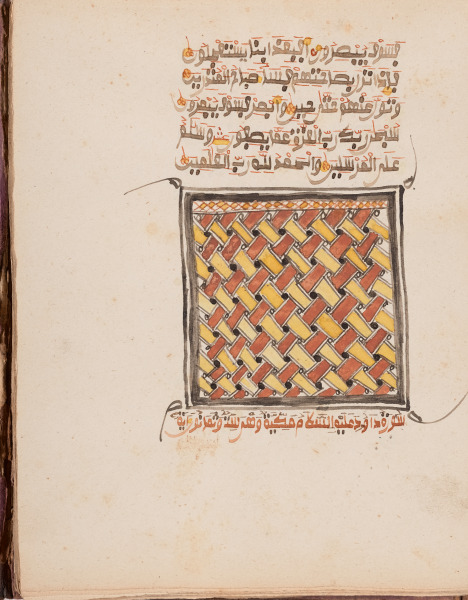 فسوف يبصرون افبعذابنا يستعجلون
فإذا نزل بساحتهم فساء صباح المنذرين
وتول عنهم حتى حين وابصر فسوف يبصرون
سبحن ربك رب العزة عما يصفون وسلم
على المرسلين والحمد لله رب العلمين
سورة داود عليه السلام مكية وهي